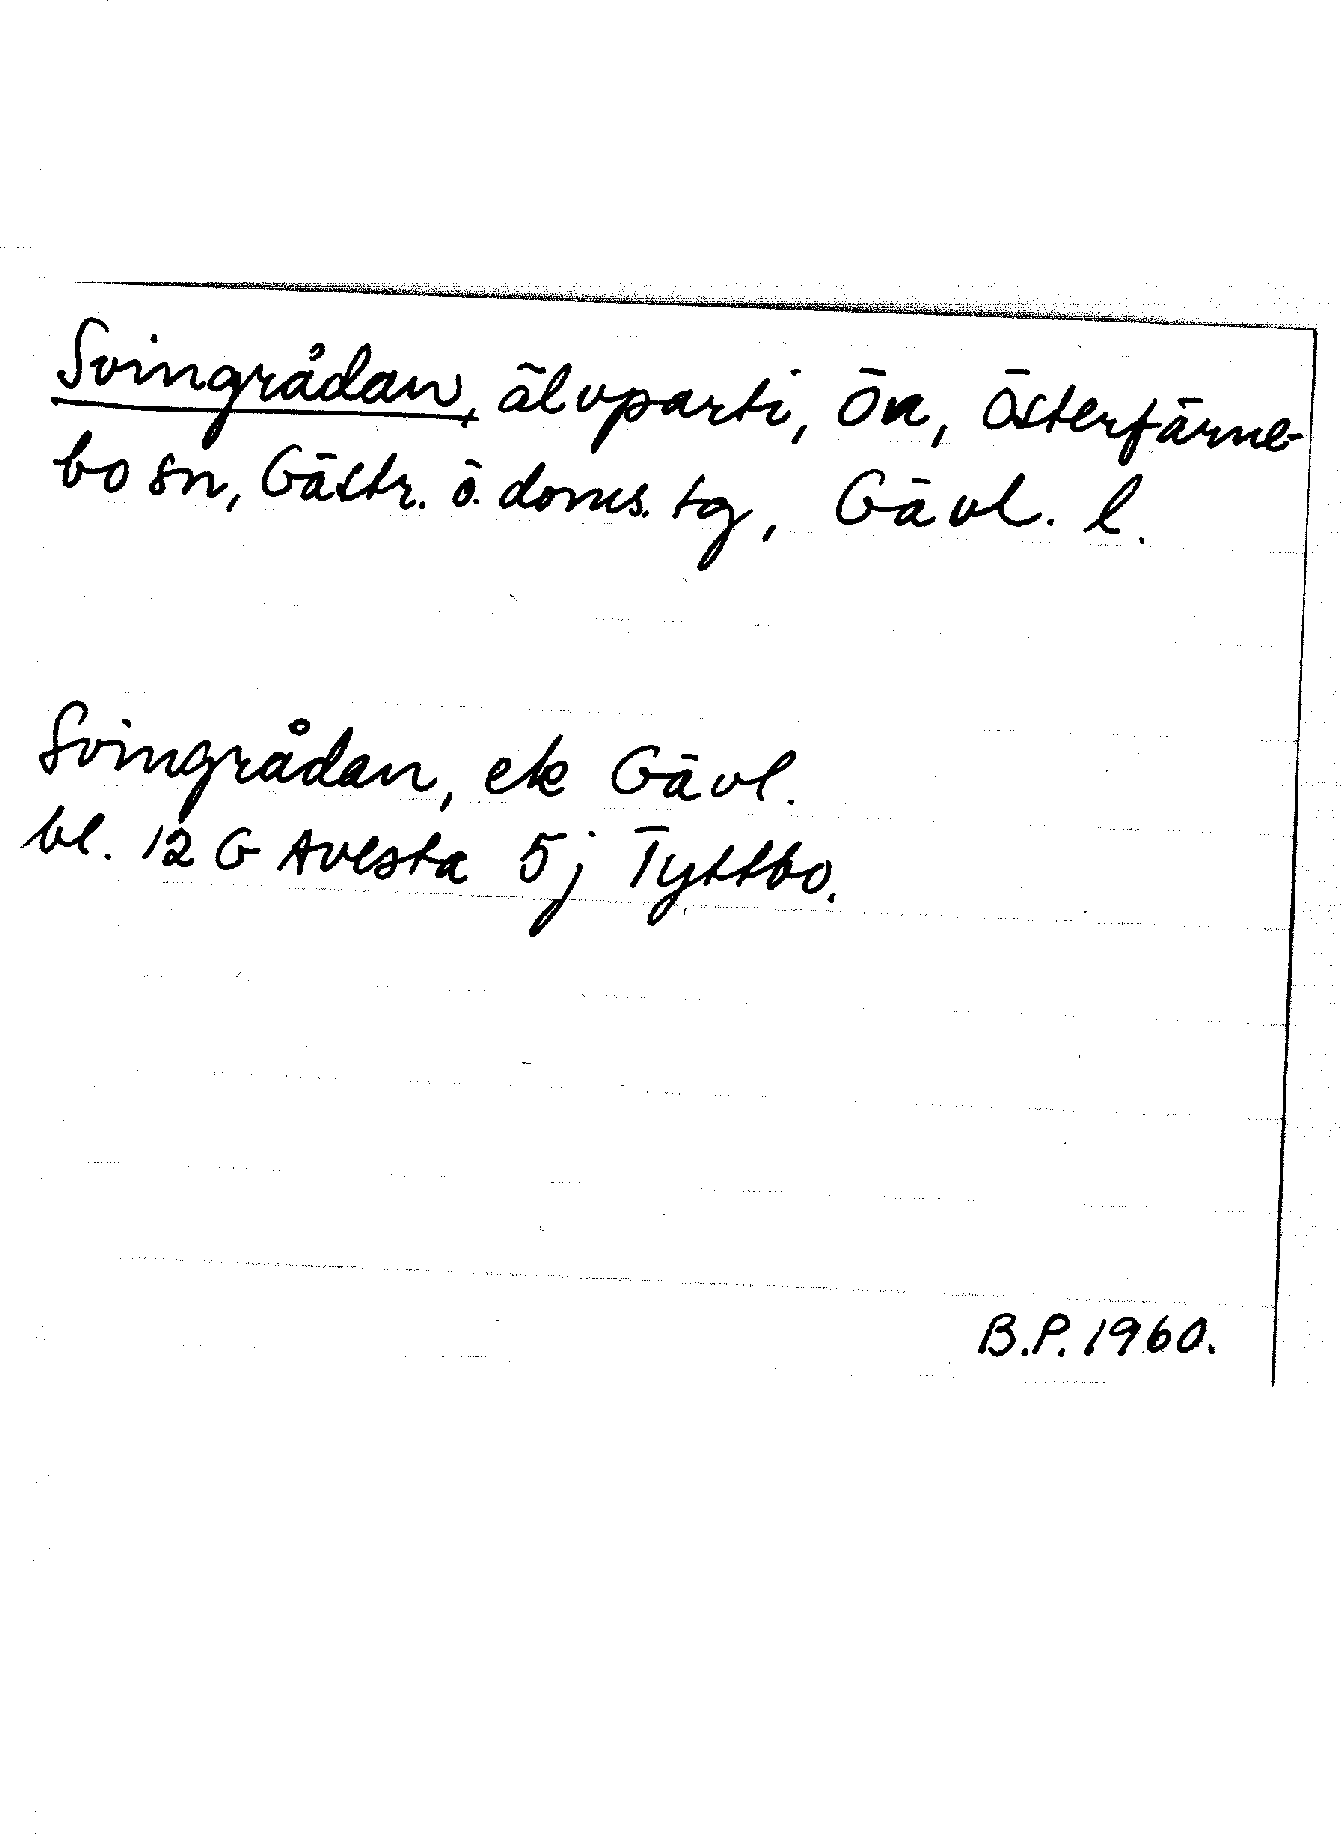 Svingrådan, älvparti, Ön, Österfärne-
bo sn, Gästr. ö. doms. tg, Gävl. l.
Svingrådan, ek Gävl.
bl. 12 G Avesta 5j Tyttbo.
B.P. 1960.